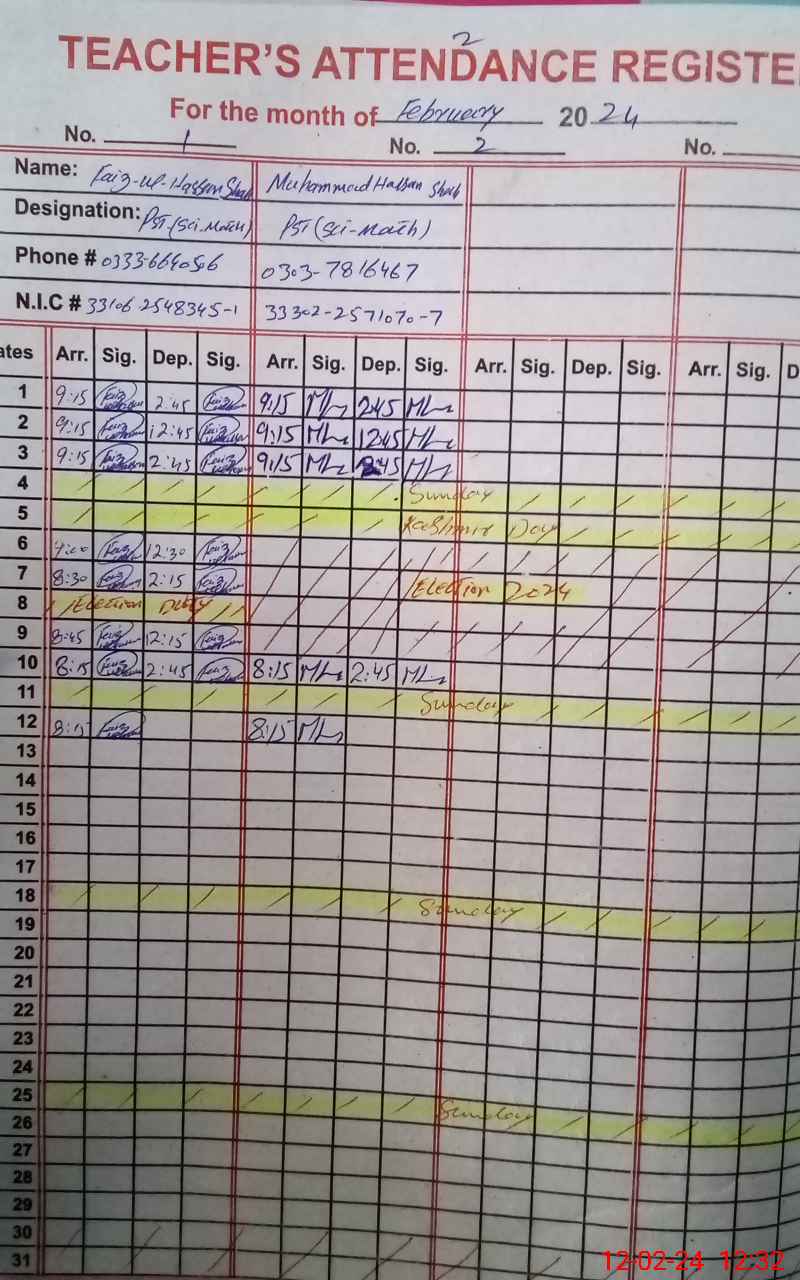 2
TEACHER'S ATTENDANCE REGISTE
For the month of February 20 24
No. 1 No. 2 No.
Name: Faiz-ul-Hassan Shah Muhammad Hassan Shah
Designation: PST (Sci-Math) PST (Sci-Math)
Phone # 0333-6640506 0303-7816467
N.I.C # 33106 2548345-1 33302-2571070-7
ates Arr. Sig. Dep. Sig. Arr. Sig. Dep. Sig. Arr. Sig. Dep. Sig. Arr. Sig. D
1 9:15 2:45 9:15 2:45
2 9:15 12:45 9:15 12:45
3 9:15 2:45 9:15 2:45
4 Sunday
5 Kashmir Day
6 12:30
7 8:30 2:15 Election 2024
8 Election Duty
9 8:45 12:15
10 8:15 2:45 8:15 2:45
11 Sunday
12 8:15 8:15
13
14
15
16
17
18 Sunday
19
20
21
22
23
24
25 Sunday
26
27
28
29
30
31
12-02-24 12:32